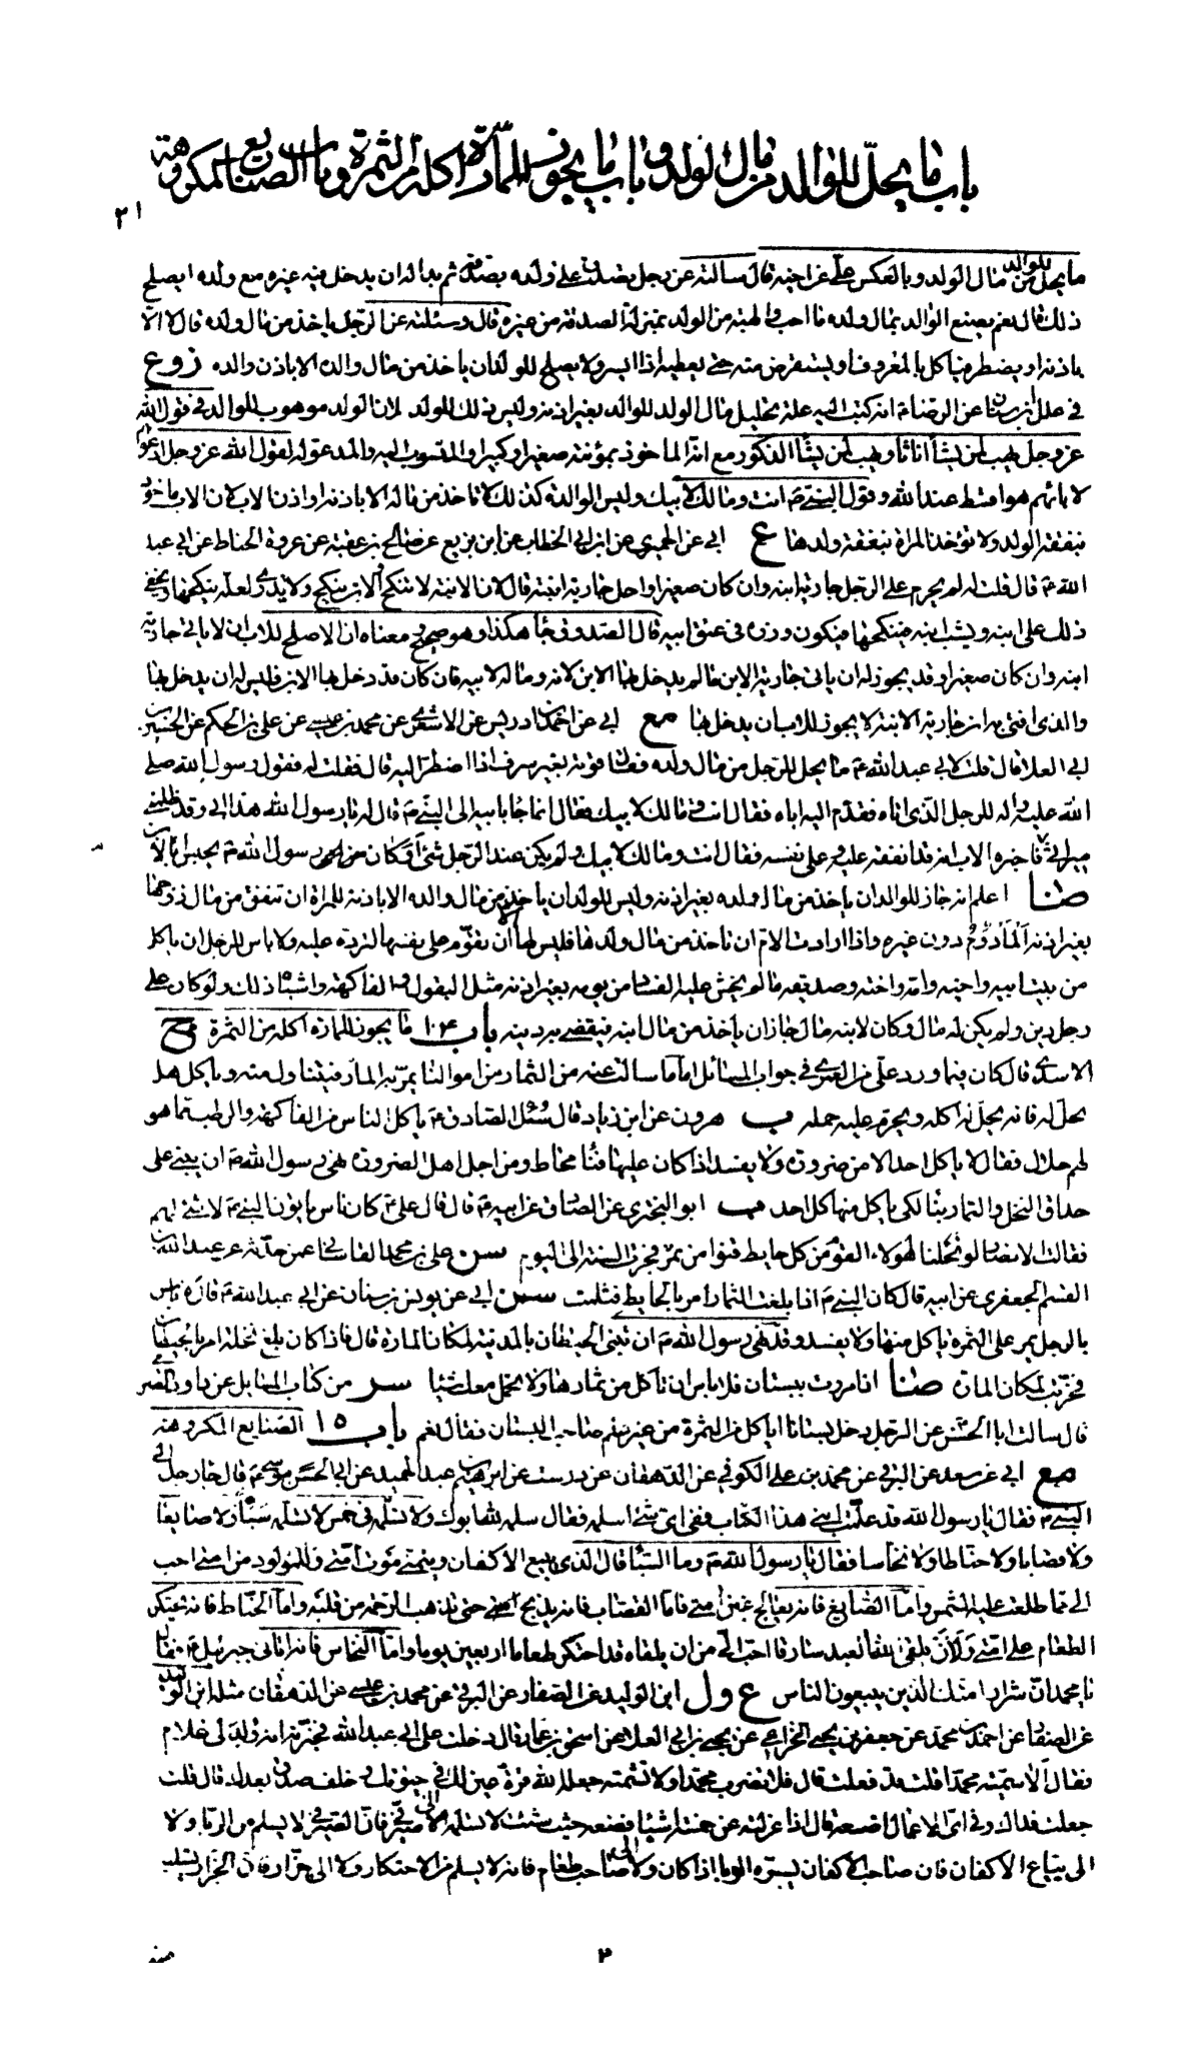 باب ما يحلّ للوالد من مال الولد وباب ما يجوز للمارّة اكله من الثمرة وباب الصنايع المكروهة
٢١
ما يحل للوالد من مال الولد وبالعكس على عن اخيه قال سالته عن رجل تصدق على ولده بصدقة ثم بدا له ان يدخل فيه غيره مع ولده ايصلح
ذلك قال نعم يصنع الوالد بمال ولده ما احب والهبة من الولد بمنزلة الصدقة من غيره قال وسئلته عن الرجل ياخذ من مال ولده قال لا الا
باذنه او يضطر فياكل بالمعروف او يستقرض منه حتى يعطيه اذا ايسر ولا يصلح للولد ان ياخذ من مال والده الا باذن والده
فى علل ابن سنان عن الرضا ع انه كتب اليه علة تحليل مال الولد للوالد بغير اذنه وليس ذلك للولد لان الولد موهوب للوالد فى قول الله
عز وجل يهب لمن يشأ اناثا ويهب لمن يشأ الذكور مع انه الماخوذ بمؤنته صغيرا وكبيرا والمنسوب اليه والمدعو له لقول الله عز وجل ادعوهم
لابائهم هو اقسط عند الله وقول النبى ص انت ومالك لابيك وليس الوالدة كذلك لا تاخذ من ماله الا باذنه او اذن الاب لان الاب ماخوذ
بنفقة الولد ولا تؤخذ المراة بنفقة ولدها ع ابى عن الحميرى عن ابن ابى الخطاب عن ابن بزيع عن صالح بن عقبة عن عروة الحناط عن ابى عبد
الله ع قال قلت له لم يحرم على الرجل جارية ابنه وان كان صغيرا واحل جارية ابنته قال لان الابنة لا تنكح والابن ينكح ولا يدرى لعله ينكحها ويخفى
ذلك على ابنه ويشب ابنه فينكحها فيكون وزره فى عنق ابيه قال الصدوق جا هكذا وهو صحيح ومعناه ان الاصلح للاب ان لا ياتى جارية
ابنه وان كان صغيرا وقد يجوز له ان ياتى جارية الابن ما لم يدخل بها الابن لانه وماله لابيه فان كان قد دخل بها الابن فليس له ان يدخل بها
والذى افتى به ان جارية الابنة لا يجوز للاب ان يدخل بها مع ابى عن احمد بن ادريس عن الاشعرى عن محمد بن عيسى عن على بن الحكم عن الحسين بن
ابى العلا قال قلت لابى عبد الله ع ما يحل للرجل من مال ولده فقال قوته بغير سرف اذا اضطر اليه قال فقلت له فقول رسول الله صلى
الله عليه واله للرجل الذى اتاه فقدم اليه اباه فقال انت ومالك لابيك فقال انما جا بابيه الى النبى ص قال له يا رسول الله هذا ابى وقد ظلمنى
ميراثى من امى فاخبره الاب انه قد انفقه عليه وعلى نفسه فقال انت ومالك لابيك ولم يكن عند الرجل شئ افكان رسول الله ص يحبس ابا لابن
ضا اعلم انه جائز للوالد ان ياخذ من مال ولده بغير اذنه وليس للولد ان ياخذ من مال والده الا باذنه للمراة ان تنفق من مال زوجها
بغير اذنه المأدوم دون غيره واذا ارادت الام ان تاخذ من مال ولدها فليس لها الا ان تقوم على نفسها لترده عليه ولا باس للرجل ان ياكل
من بيت ابيه واخيه وامه واخته وصديقه ما لم يخش عليه الفساد من يومه بغير اذنه مثل البقول والفاكهة واشباه ذلك ولو كان على
رجل دين ولم يكن له مال وكان لابنه مال جاز ان ياخذ من مال ابنه فيقضى به دينه باب ما يجوز للمارة اكله من الثمرة ج
الاسدى قال كان فيما ورد على من العمرى فى جواب المسائل اما ما سالت عنه من الثمار من اموالنا يمر به المار فيتناول منه وياكل هل
يحل له فانه يحل له اكله ويحرم عليه حمله ب هرون عن ابن زياد قال سئل الصادق ع ما ياكل الناس من الفاكهة والرطب مما هو
لهم حلال فقال لا ياكل احد الا من ضرورة ولا يفسد اذا كان عليها فنا محاط ومن اجل اهل الضرورة نهى رسول الله ص ان يبنى على
حدائق النخل والثمار بنا لكى ياكل منها كل احد ب ابو البخترى عن الصادق عن ابيه ع قال قال على ع كان ناس ياتون النبى ص لا شئ لهم
فقالت الانصار لو نحلنا لهولاء القوم من كل حايط قنوا من تمر فجرت السنة الى اليوم سن على بن محمد القاسانى عمن حدثه عن عبد الله بن
القسم الجعفرى عن ابيه قال كان النبى ص اذا بلغت الثمار امر بالحايط فثلمت سن ابى عن يونس عن ابن سنان عن ابى عبد الله ع قال لا باس
بالرجل يمر على الثمرة ياكل منها ولا يفسد وقد نهى رسول الله ص ان تبنى الحيطان بالمدينة لمكان المارة قال فاذا كان بلغ نخله امر بالحيطان
فخربت لمكان المارة ضا اذا مررت ببستان فلا باس ان تاكل من ثمارها ولا تحمل معك شيئا سر من كتاب المسائل عن داود الصرمى
قال سالت ابا الحسن عن الرجل دخل بستانا اياكل من الثمرة من غير علم صاحب البستان فقال نعم باب ١٥ الصنايع المكروهة
مع ابى عن سعد عن البرقى عن محمد بن على الكوفى عن الدهقان عن درست عن ابراهيم بن عبد الحميد عن ابى الحسن موسى ع قال جا رجل الى
النبى ص فقال يا رسول الله قد علمت ابنى هذا الكتاب ففى اى شئ اسلمه فقال سلمه لله ابوك ولا تسلمه فى خمس لا تسلمه سبّأ ولا صايغا
ولا قصابا ولا حناطا ولا نخاسا فقال يا رسول الله ص وما السبّأ قال الذى يبيع الاكفان ويتمنى موت امتى وللمولود من امتى احب
الى مما طلعت عليه الشمس واما الصايغ فانه يعالج غبن امتى فاما القصاب فانه يذبح حتى تذهب الرحمة من قلبه واما الحناط فانه يحتكر
الطعام على امتى ولان يلقى الله العبد سارقا احب الى من ان يلقاه قد احتكر طعاما اربعين يوما واما النخاس فانه اتانى جبرئيل ع فقال
يا محمد ان شرار امتك الذين يبيعون الناس ع ول ابن الوليد عن الصفار عن البرقى عن محمد بن عيسى عن الدهقان مثله ابن الوليد
عن الصفار عن احمد بن محمد عن جعفر بن يحيى الخزاعى عن يحيى بن ابى العلا عن اسحق بن عمار قال دخلت على ابى عبد الله فخبرته انه ولد لى غلام
فقال الا سميته محمدا قلت قد فعلت قال فلا تضرب محمدا ولا تشتمه جعله الله قرة عين لك فى حيوتك وخلف صدق بعدك قال قلت
جعلت فداك وفى اى الاعمال اضعه قال اذا عزلته عن خمسة اشيا فضعه حيث شئت لا تسلمه الى صيرفى فان الصيرفى لا يسلم من الربا ولا
الى بياع الاكفان فان صاحب الاكفان يسره الوبا اذا كان ولا الى صاحب طعام فانه لا يسلم من الاحتكار ولا الى جزار فان الجزار تسلب
٢
منه